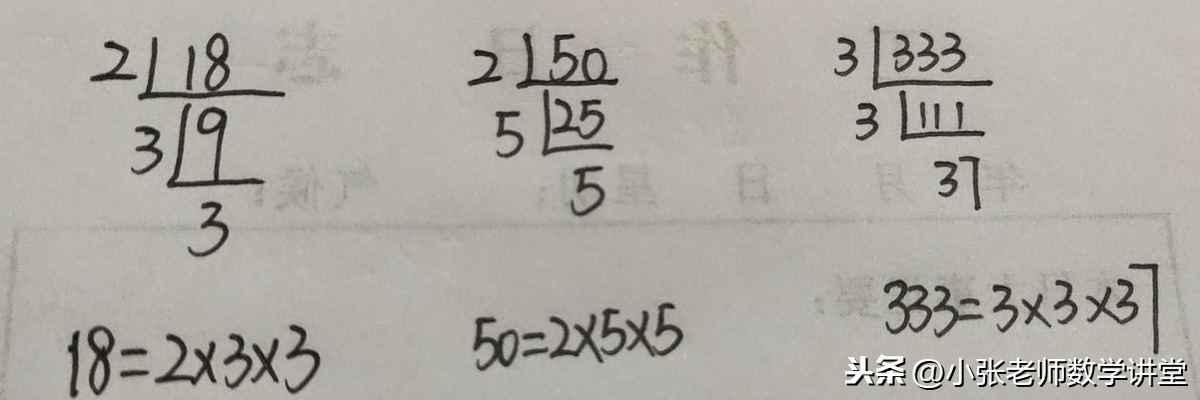 2 18
3 9
3
18=2×3×3
2 50
5 25
5
50=2×5×5
3 333
3 111
37
333=3×3×37
头条 @小张老师数学讲堂